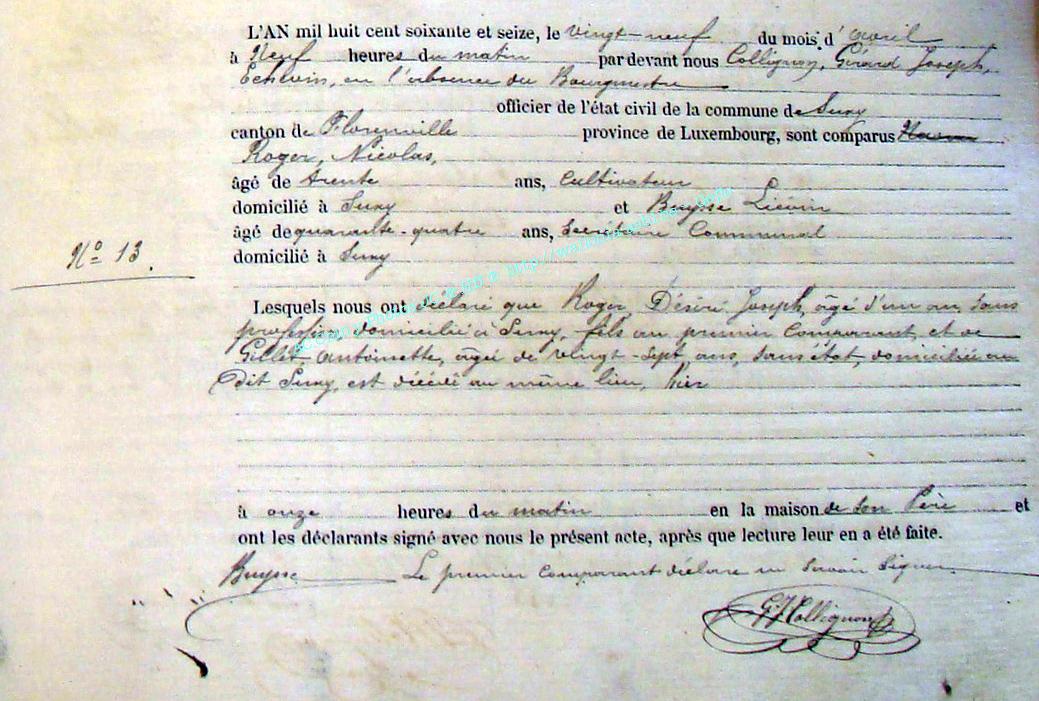 L'AN mil huit cent soixante et seize, le vingt-neuf du mois d'avril
à Neuf heures du matin pardevant nous Collignon, Girard Joseph,
échevin, en l'absence du Bourgmestre
officier de l'état civil de la commune de Suxy
canton de Florenville province de Luxembourg, sont comparus
Roger, Nicolas,
âgé de trente ans, Cultivateur
domicilié à Suxy et Buysse Liévin
âgé de quarante-quatre ans, Secrétaire Communal
N° 13.
domicilié à Suxy
Lesquels nous ont déclaré que Roger, Désiré Joseph, âgé d'un an, sans
profession, domicilié à Suxy, fils du premier Comparant, et de
Gillet Antoinette, âgée de vingt-sept ans, sans état, domiciliée au
dit Suxy, est décédé au même lieu, hier
à onze heures du matin en la maison de son Père et
ont les déclarants signé avec nous le présent acte, après que lecture leur en a été faite.
Buysse Le premier Comparant déclare ne Savoir Signer
G J Collignon